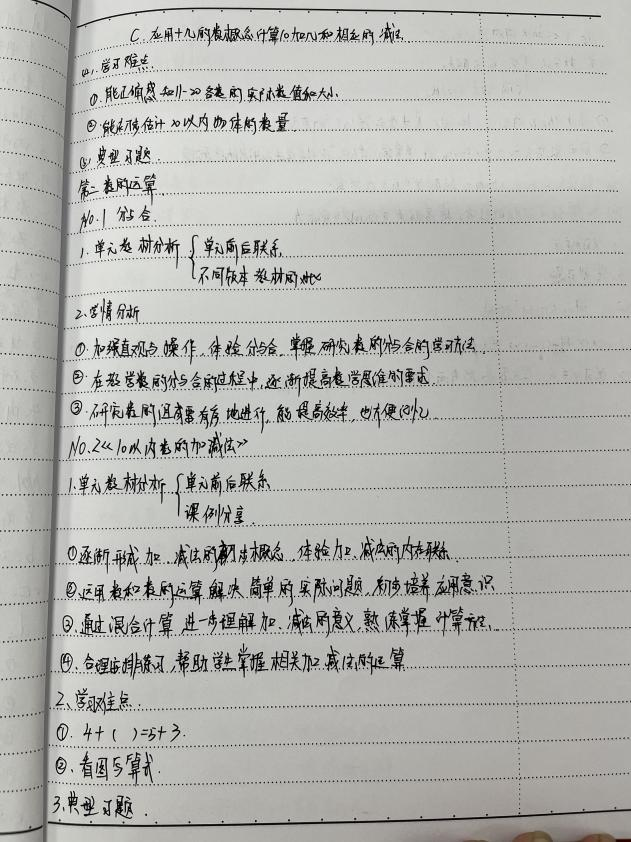 C. 应用十几的数概念计算10加几和相应的减法
(4). 学习难点
①. 能正确感知11-20各数的实际数值和大小
②. 能够估计20以内物体的数量
(5). 典型习题.
第二 数的运算
No.1 分与合.
1. 单元教材分析 { 单元前后联系
不同版本教材的对比
2. 学情分析
① 加强直观与操作, 体验分与合, 掌握研究数的分与合的学习方法.
② 在教学数的分与合的过程中, 逐渐提高数学思维的要求.
③. 研究数的组成要有序地进行, 能提高效率, 也方便记忆
No.2 《10以内数的加减法》
1. 单元教材分析 { 单元前后联系
课例分享
① 逐渐形成加、减法的初步概念, 体验加、减法的内在联系
② 运用数和数的运算解决简单的实际问题, 初步培养应用意识
③ 通过混合计算 进一步理解加、减法的意义, 熟练掌握计算方法.
④. 合理安排练习, 帮助学生掌握相关加、减法的运算
2、学习难点
①. 4+( )=5+3.
②. 看图写算式.
3. 典型习题.